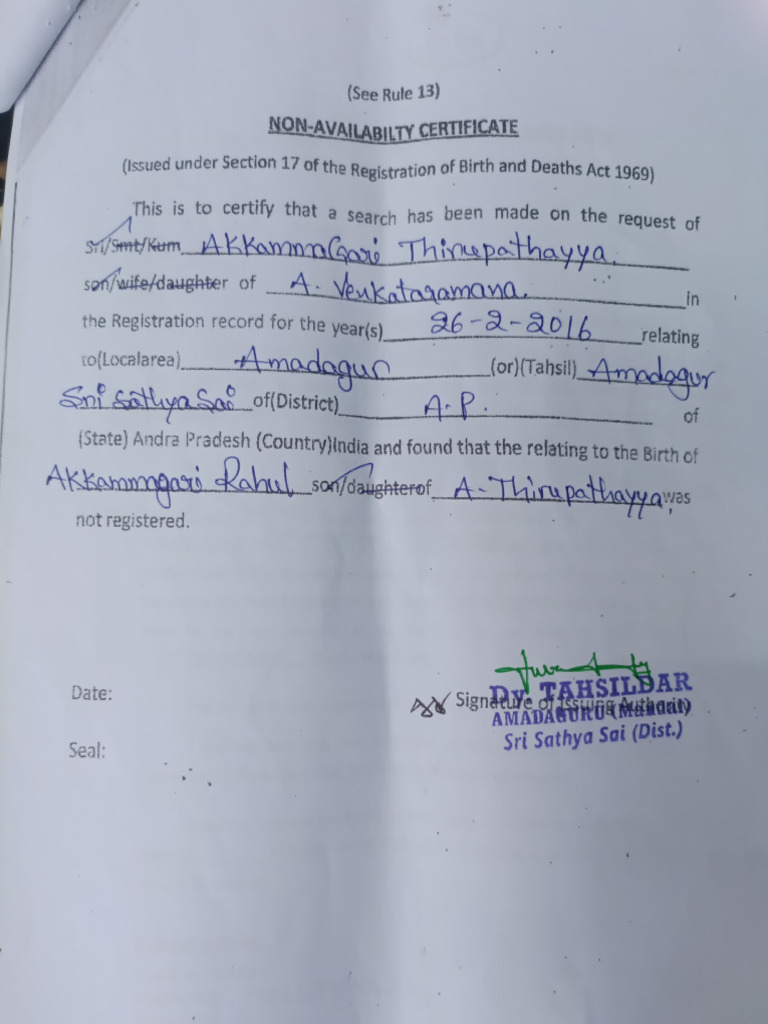 (See Rule 13)
NON-AVAILABILTY CERTIFICATE
(Issued under Section 17 of the Registration of Birth and Deaths Act 1969)
This is to certify that a search has been made on the request of
Sri/Smt/Kum AKKammaGari Thirupathayya.
son/wife/daughter of A. Venkataramana. in
the Registration record for the year(s) 26-2-2016 relating
to(Localarea) Amadagur (or)(Tahsil) Amadagur
Sri Sathya Sai of(District) A.P. of
(State) Andra Pradesh (Country)India and found that the relating to the Birth of
AKKammagari Rahul son/daughterof A. Thirupathayya was
not registered.
Date:
Signature of Issuing Authority
Dy. TAHSILDAR
AMADAGURU (Mandal)
Sri Sathya Sai (Dist.)
Seal: